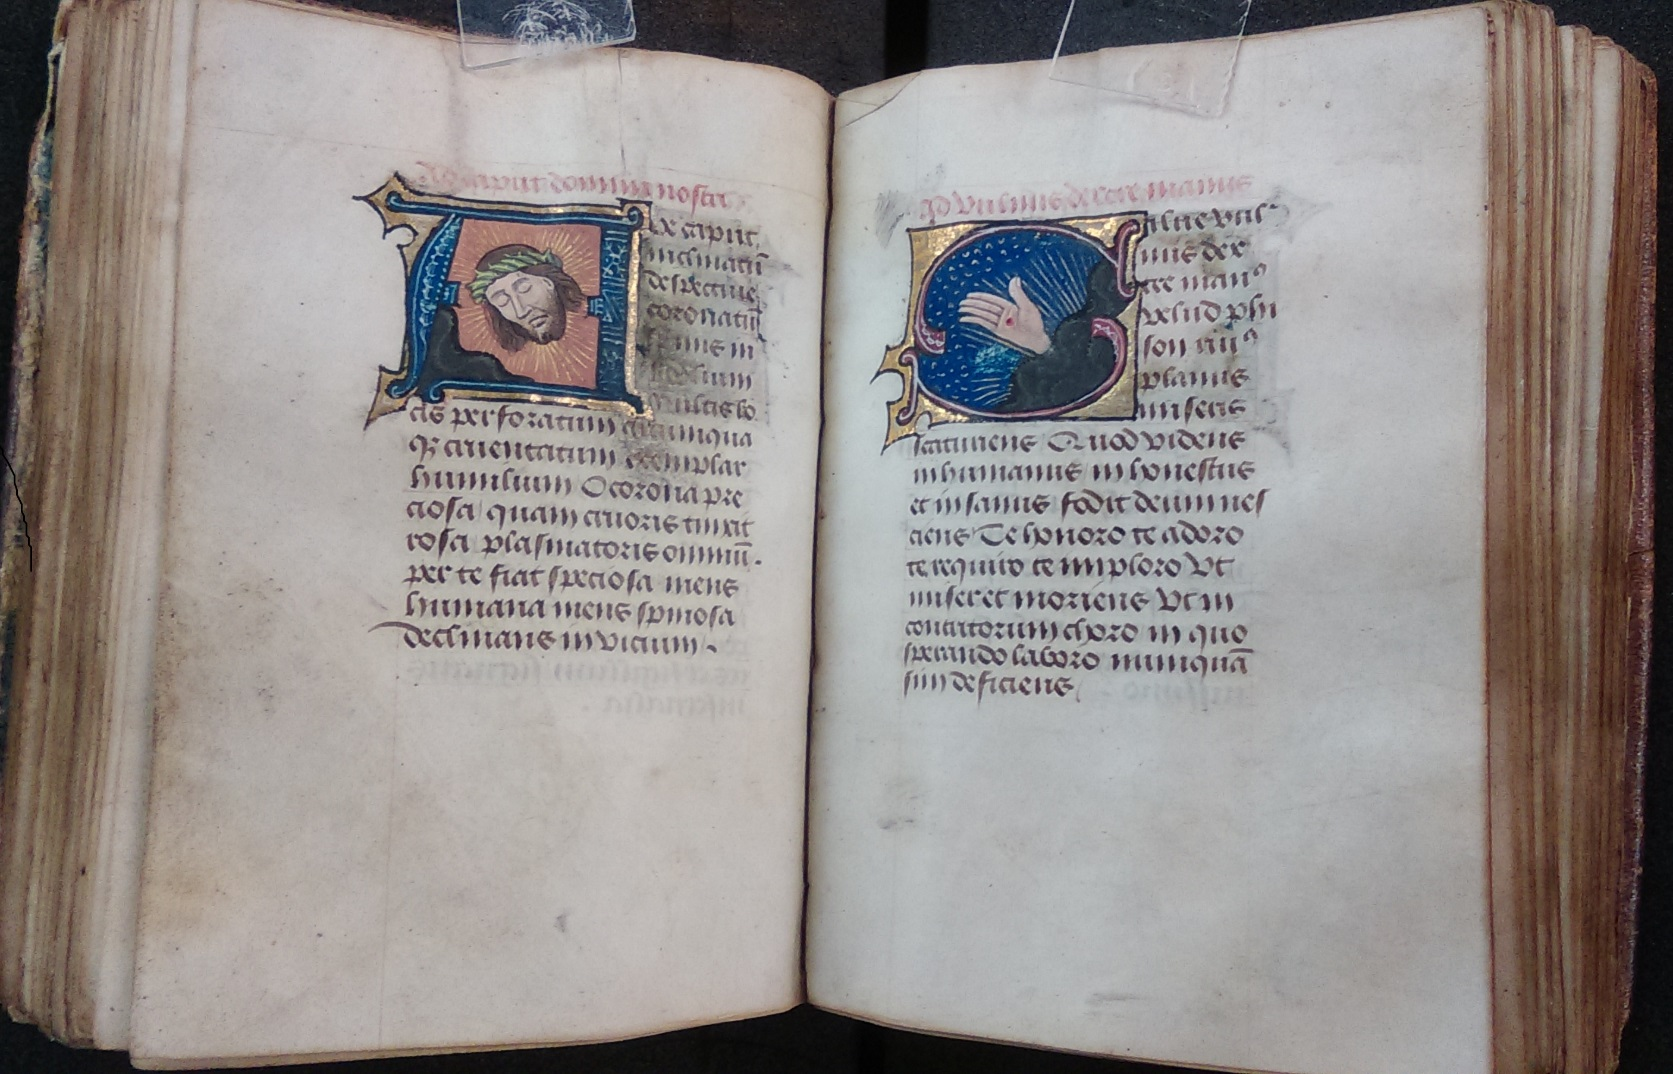 Ad caput domini nostri
Ave caput
inclinatū
despective
coronatū
spinis in
fidelium
Multis lo
cis perforatum circumqua
qȝ cruentatum exemplar
humilium O corona pre
ciosa quam cruoris tinxit
rosa plasmatoris omniū .
per te fiat speciosa mens
humana mens spinosa
declinans in vicium .
Ad vulnus dextre manus
Salve vul
nus dex
tre manꝰ
velud phi
son
planus
miseris
scaturiens Quod videns
inhumanus inhonestus
et insanus fodit deum nes
ciens Te honoro te adoro
te requiro te imploro Vt
miseret moriens Vt in
choro in quo
sperando laboro nunquā
sim deficiens